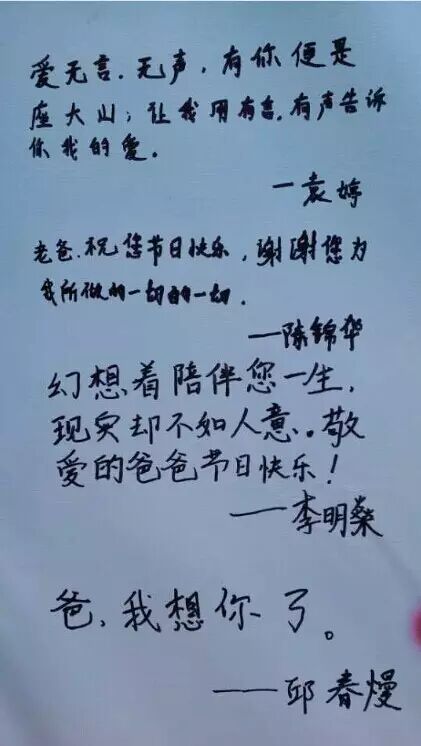 爱无言.无声，有你便是
座大山；让我用有言.有声告诉
你我的爱。
—袁婷
老爸.祝您节日快乐，谢谢您为
我所做的一切的一切.
—陈锦华
幻想着陪伴您一生，
现实却不如人意。敬
爱的爸爸节日快乐！
——李明燊
爸，我想你了。
——邱春熳